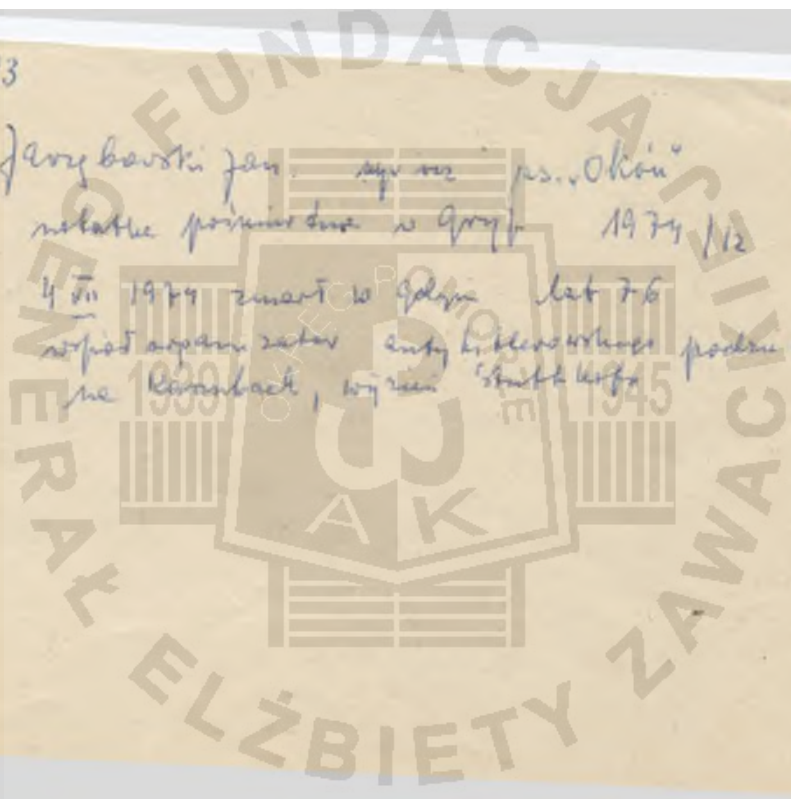 3
Jarzębowski Jan. ps. „Okoń”
notatka pośmiertna w Gryf 1974/12
4 VII 1974 zmarł w Gdyni lat 76
współorganizator antyhitlerowskiego podzie
na Kaszubach, więzień Stutthofu
FUNDACJA GENERAŁ ELŻBIETY ZAWACKIEJ
OKRĘG POMORZE
1939 1945
AK